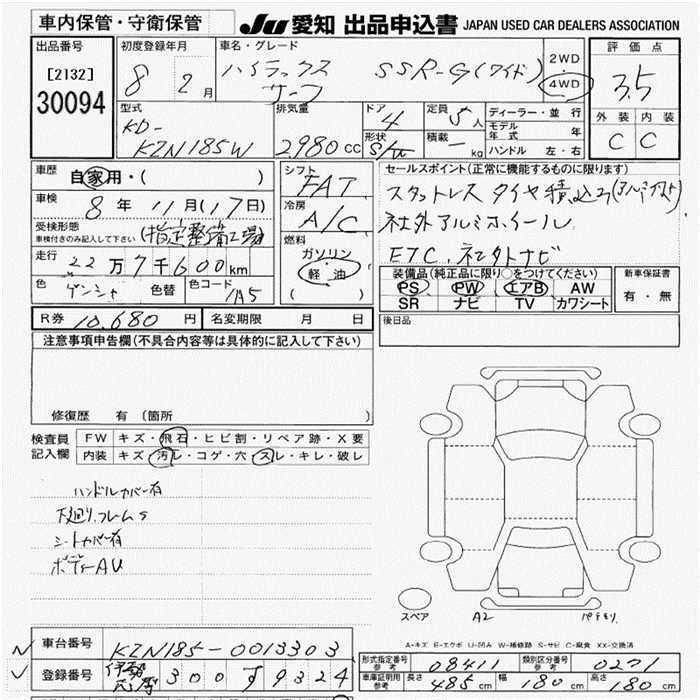 車内保管・守衛保管 JU 愛知 出品申込書 JAPAN USED CAR DEALERS ASSOCIATION
出品番号 初度登録年月 車名・グレード 評価点
[2132] 8 2月 ハイラックス サーフ SSR-G(ワイド) 2WD 4WD 3.5
30094
型式 排気量 ドア 定員 ディーラー・並行 外装 内装
KD- 4 5人 モデル年式 年 C C
KZN185W 2980cc 形状 S/W 積載 - kg ハンドル 左・右
車歴 自家用・( ) シフト FAT セールスポイント(正常に機能するものに限ります)
車検 8年 11月(17日) 冷房 A/C スタットレス タイヤ積込み
受検形態 車検付きのみ記入して下さい (指定整備工場) 社外アルミホイール
走行 22万7千600km 燃料 ガソリン 軽油 ( ) ETC、社外ナビ
色 ゲンシャ 色替 色コード 1A5
装備品(純正品に限り○をつけてください) 新車保証書
PS PW エアB AW 有・無
SR ナビ TV カワシート
R券 10,680円 名変期限 月 日 後日品
注意事項申告欄(不具合内容等は具体的に記入して下さい)
修復歴 有 (箇所
検査員記入欄 FW キズ・飛石・ヒビ割・リペア跡・X要
内装 キズ・汚レ・コゲ・穴・スレ・キレ・破レ
ハンドルカバー有
下廻り、フレームS
シートカバー有
ボディーAU
スペア A2 パテモリ
A-キズ E-エクボ U-凹み W-補修跡 S-サビ C-腐食 XX-交換済
車台番号 KZN185-0013303
登録番号 300 す 9324
形式指定番号 参考 08411 類別区分番号 参考 0271
車庫証明用 参考 長さ 485cm 幅 180cm 高さ 180cm